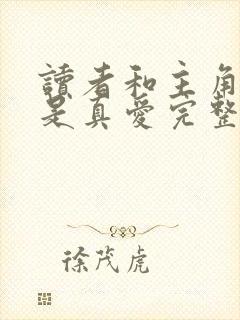 讀者和主角
是真愛完整
徐茂虎